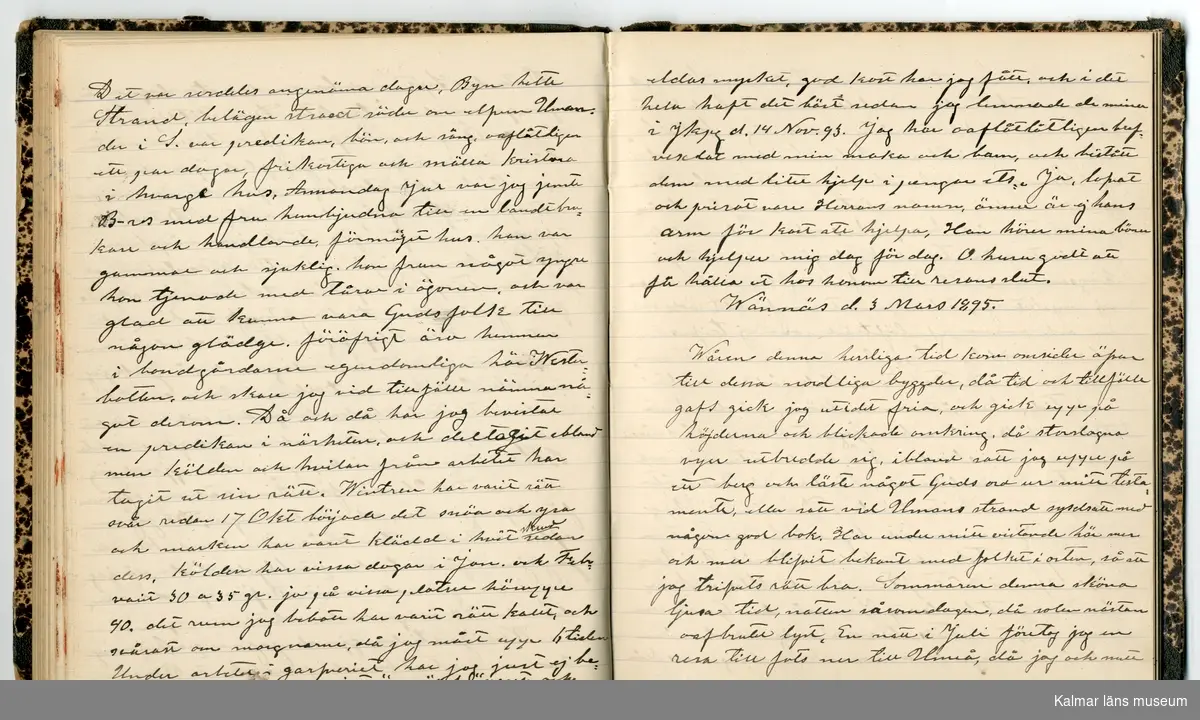 Det var serdeles angenäma dagar, Byn hette
Strand, belägen straxt söder om elfven Uman.
der i S. var predikan, bön, och sång, oaflåtligen
ett par dagar, frikostiga och snälla kristna
i hvarje hus, Annandag Jul var jag jemte
B-rs med fru hembjudna till en landtbru-
kare och handlande, förmöget hus. han var
gammal och sjuklig. hon frun något yngre
hon tjenade med tårar i ögonen, och var
glad att kunna vara Guds folk till
någon glädje. föröfrigt äro hemmen
i bondgårdarne egendomliga här i Wester-
botten, och skall jag vid tillfälle nämna nå-
got derom. Då och då har jag bevistat
en predikan i närheten, och deltagit ibland
men kölden och hvilan från arbetet har
tagit ut sin rätt. Wintren har varit rätt
svår redan 17 Okt började det snöa och yra
och marken har varit klädd i hvit skrud sedan
dess, kölden har vissa dagar i Jan. och Feb.
varit 30 a 35 gr. ja på vissa platser här uppe
40. det rum jag bebott har varit rätt kallt, och
svårast om morgnarne, då jag måst upp 6 tiden
Under arbetet i garfveriet har jag just ej be-
eldas mycket, god kost har jag fått, och i det
hela haft det bäst sedan jag lemnade de mina
i Jkpg d. 14 Nov. 93. Jag har oaflåtligen bref-
vexlat med min maka och barn, och bistått
dem med litet hjelp i pengar etc. Ja, lofvat
och prisat vare Herrans namn, ännu är ej hans
arm för kort att hjelpa, Han hörer mina böner
och hjelper mig dag för dag. O huru godt att
få hålla ut hos honom till resans slut.
Wännäs d. 3 Mars 1895.
Wåren denna herrliga tid kom omsider äfven
till dessa nordliga bygder, då tid och tillfälle
gafs gick jag ut i det fria, och gick upp på
höjderna och blickade omkring, då storslagna
vyer utbredde sig, ibland satt jag uppe på
ett berg och läste något Guds ord ur mitt testa-
mente, eller satt vid Umans strand sysselsatt med
någon god bok. Har under mitt vistande här mer
och mer blifvit bekant med folket i orten, så att
jag trifvats rätt bra. Sommaren denna sköna
ljusa tid, natten såsom dagen, då solen nästan
oafbrutet lyst. En natt i Juli företog jag en
resa till fots ner till Umeå, då jag och mitt
Kalmar läns museum